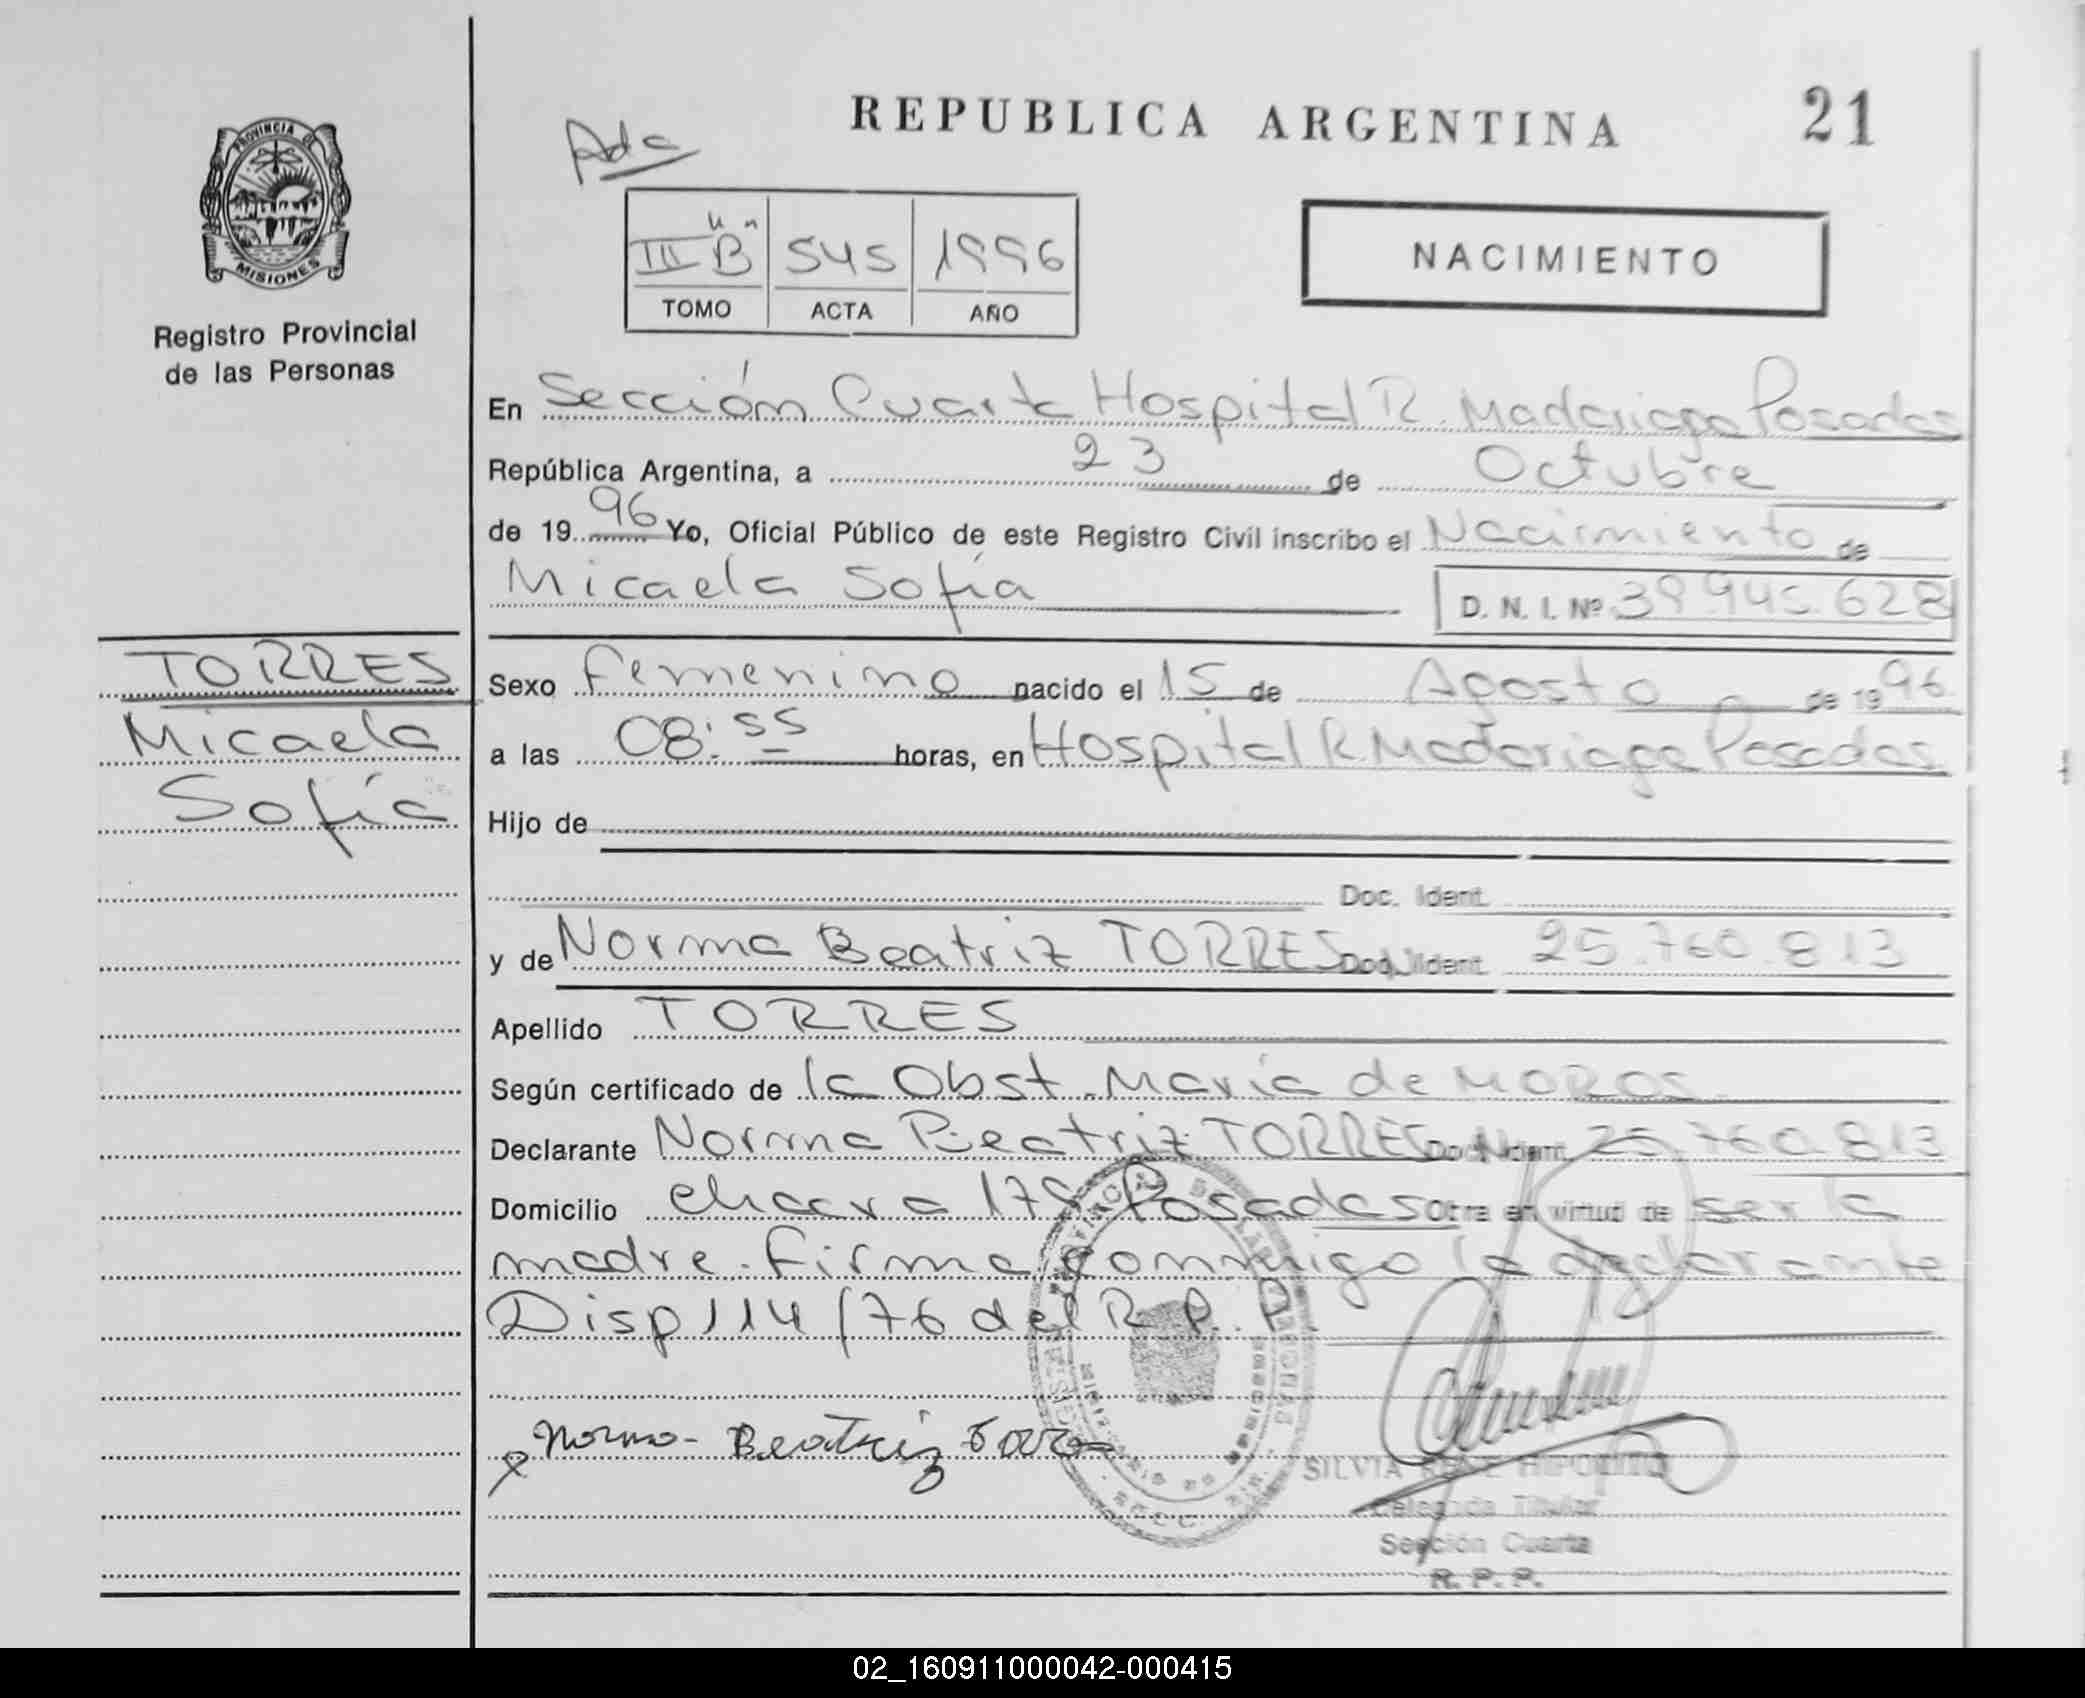 REPUBLICA ARGENTINA
21
Ada
PROVINCIA DE
MISIONES
Registro Provincial
de las Personas
III "B" 545 1996
TOMO ACTA AÑO
NACIMIENTO
En Sección Cuarta Hospital R. Madariaga Posadas
República Argentina, a 23 de Octubre
de 19 96 Yo, Oficial Público de este Registro Civil inscribo el Nacimiento de
Micaela Sofía D. N. I. Nº 39.945.628
TORRES
Micaela
Sofía
Sexo Femenino nacido el 15 de Agosto de 19 96
a las 08:55 horas, en Hospital R. Madariaga Posadas
Hijo de
Doc. Ident.
y de Norma Beatriz TORRES Doc. Ident. 25.760.813
Apellido TORRES
Según certificado de la Obst. María de MOROS
Declarante Norma Beatriz TORRES Doc. Ident. 25.760.813
Domicilio chacra 178 Posadas Otra en virtud de ser la
madre. Firma conmigo la declarante
Disp 114/76 del R. P. P.
Norma Beatriz Torres
SILVIA
Delegada Titular
Sección Cuarta
R. P. P.
02_160911000042-000415